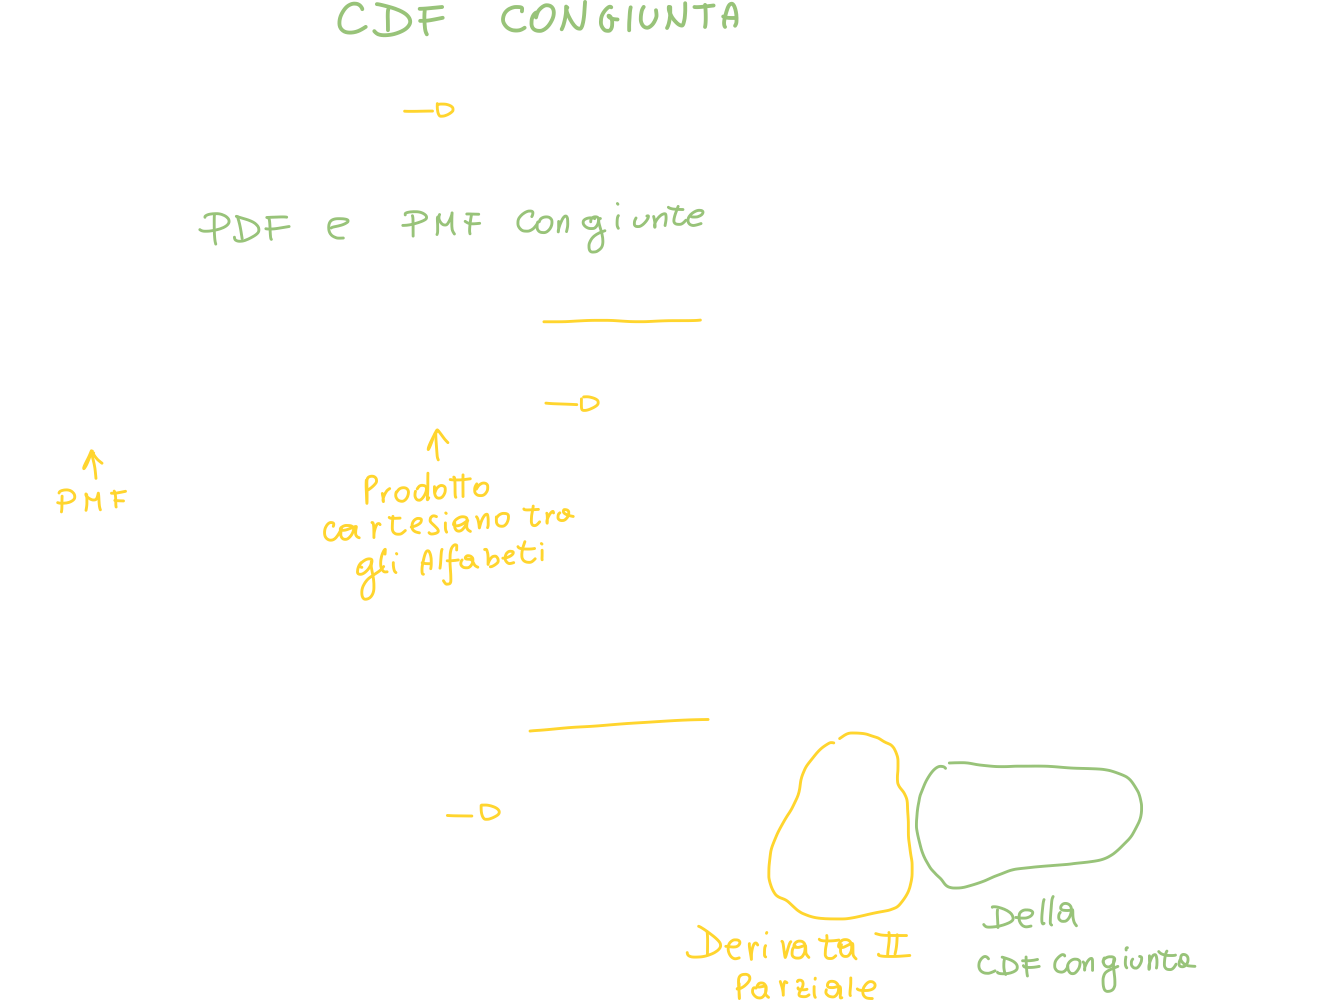 CDF CONGIUNTA
PDF e PMF Congiunte
PMF
Prodotto
cartesiano tra
gli Alfabeti
Derivata II
Parziale
Della
CDF Congiunta